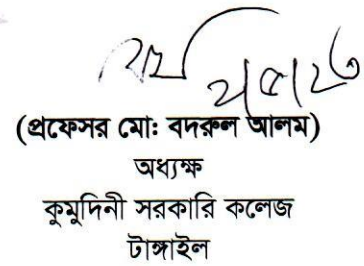 (প্রফেসর মো: বদরুল আলম)
অধ্যক্ষ
কুমুদিনী সরকারি কলেজ
টাঙ্গাইল